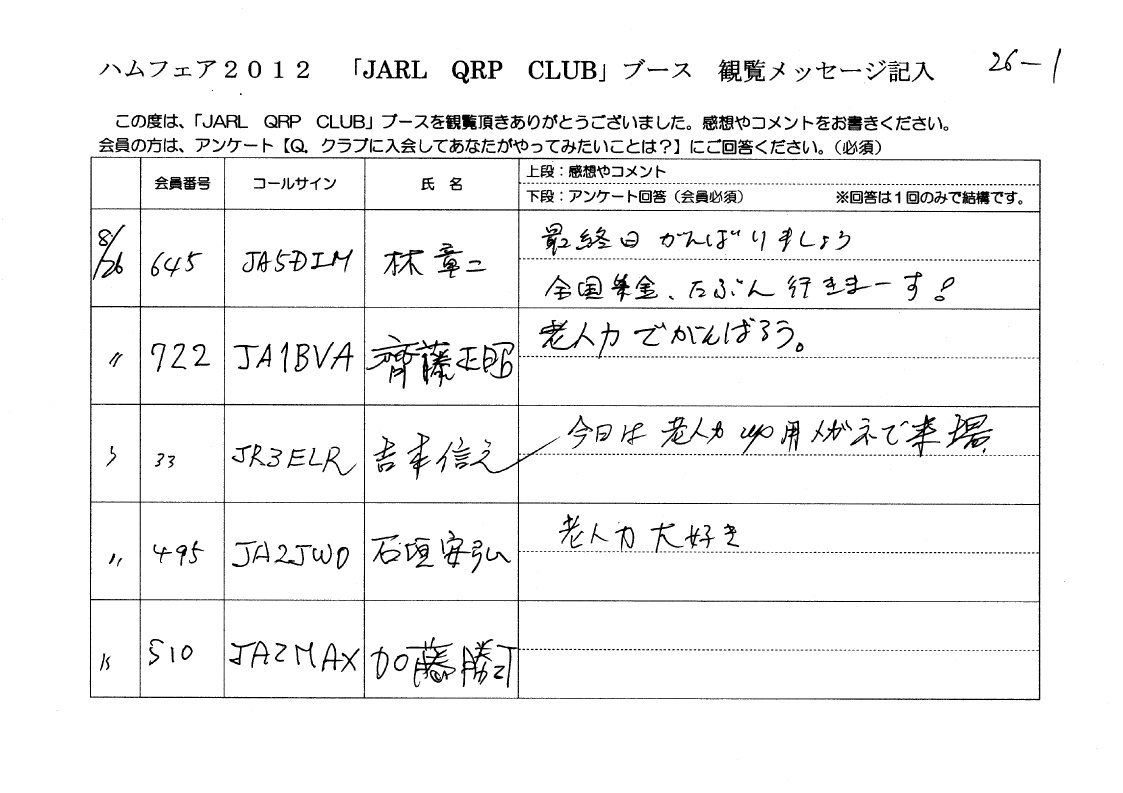 ハムフェア2012 「JARL QRP CLUB」ブース 観覧メッセージ記入 26-1
この度は、「JARL QRP CLUB」ブースを観覧頂きありがとうございました。感想やコメントをお書きください。
会員の方は、アンケート【Q. クラブに入会してあなたがやってみたいことは?】にご回答ください。(必須)
会員番号 コールサイン 氏 名 上段:感想やコメント
下段:アンケート回答(会員必須) ※回答は1回のみで結構です。
8/26 645 JA5DIM 林 章二 最終日 がんばりましょう
全国集金、たぶん 行きまーす!
〃 722 JA1BVA 齊藤正昭 老人力でがんばろう。
33 JR3ELR 吉本信之 今日は 老人力up用メガネで来場
〃 495 JA2JWO 石垣安弘 老人力大好き
510 JA2MAX 加藤勝